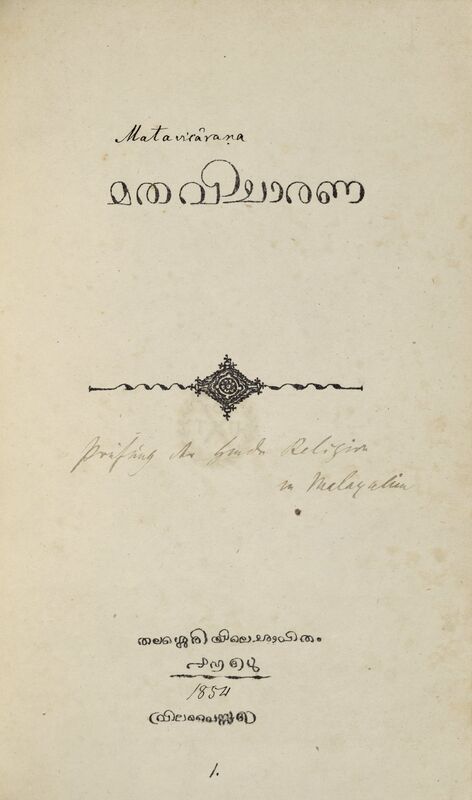 Matavicâraṇa
മതവിചാരണ
Prüfung der Hindu Religion
in Malayalim
തലശ്ശെരിയിലെഛാപിതം
1854
1.